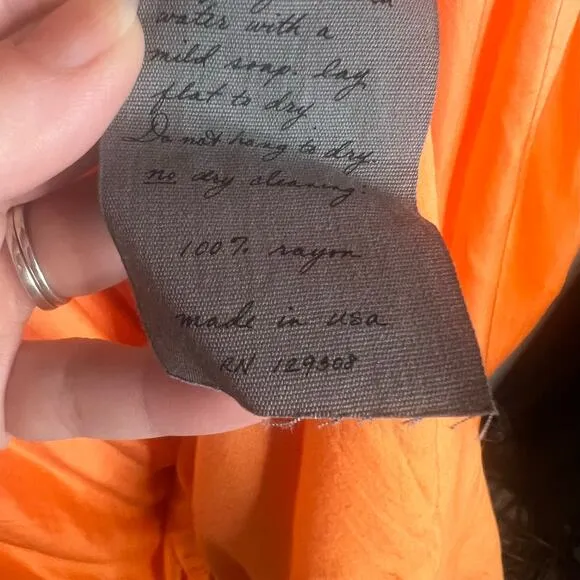 water with a
mild soap. lay
flat to dry
Do not hang to dry.
no dry cleaning.
100% rayon
made in usa
RN 129308